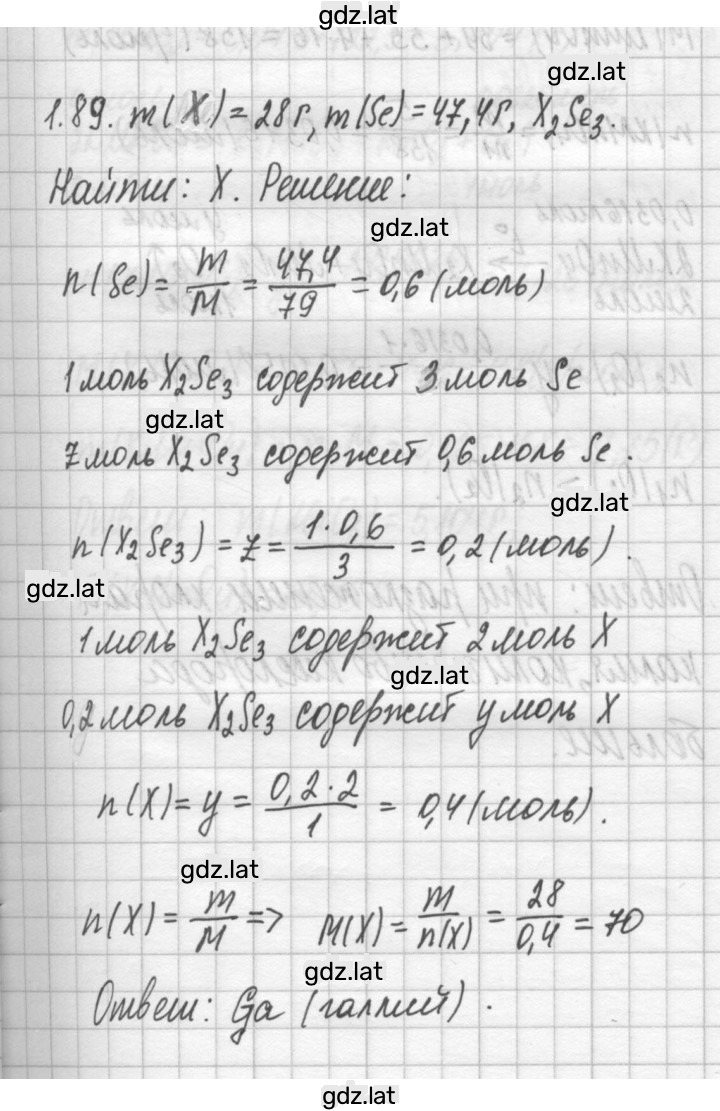 gdz.lat
gdz.lat
1.89. m(X) = 28 г, m(Se) = 47,4 г, X₂Se₃.
Найти: X. Решение:
gdz.lat
n(Se) = m/M = 47,4/79 = 0,6 (моль)
1 моль X₂Se₃ содержит 3 моль Se
gdz.lat
z моль X₂Se₃ содержит 0,6 моль Se.
gdz.lat
n(X₂Se₃) = z = 1·0,6/3 = 0,2 (моль).
gdz.lat
1 моль X₂Se₃ содержит 2 моль X
gdz.lat
0,2 моль X₂Se₃ содержит y моль X
n(X) = y = 0,2·2/1 = 0,4 (моль).
gdz.lat
gdz.lat
n(X) = m/M => M(X) = m/n(X) = 28/0,4 = 70
gdz.lat
Ответ: Ga (галлий).
gdz.lat